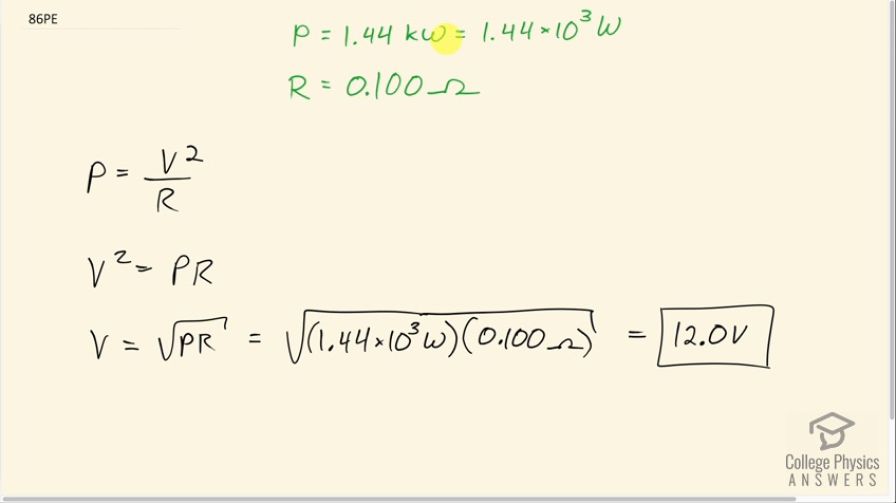 86PE
P = 1.44 kW = 1.44 × 10³ W
R = 0.100 Ω
P = V²/R
V² = PR
V = √PR = √(1.44×10³ W)(0.100 Ω) = 12.0V
College Physics
ANSWERS